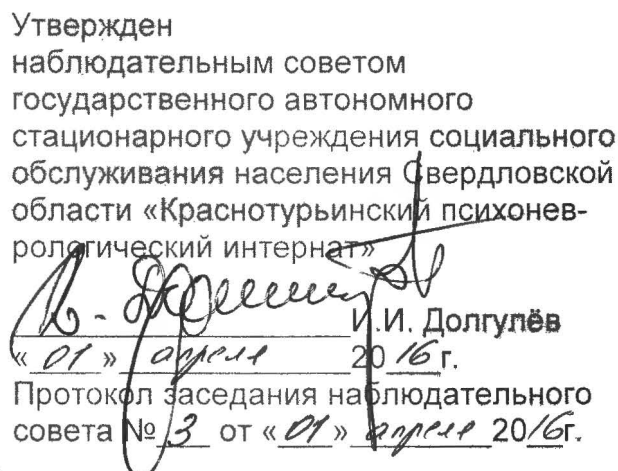 Утвержден
наблюдательным советом
государственного автономного
стационарного учреждения социального
обслуживания населения Свердловской
области «Краснотурьинский психонев-
рологический интернат»
И.И. Долгулёв
« 01 » апреля 2016 г.
Протокол заседания наблюдательного
совета № 3 от « 01 » апреля 2016г.